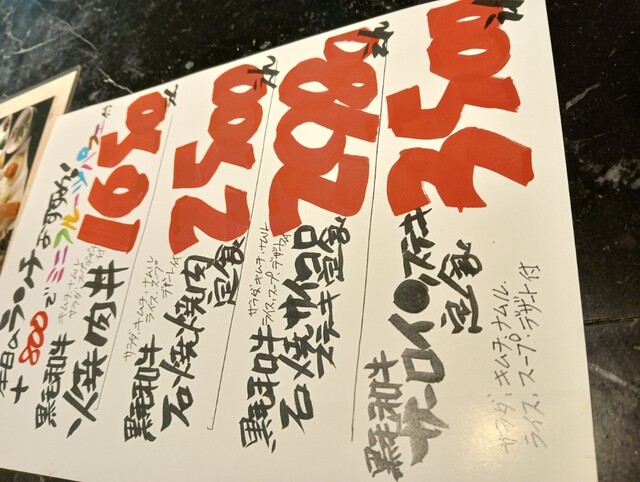 本日のランチおすすめ!
+800でミニフルーツパフェ付
黒毛和牛
火焼肉丼
サラダ キムチ ナムル
1650えん
黒毛和牛
石焼焼肉
定食
サラダ、キムチ、ナムル
ライス、スープ
デザート付
2500えん
黒毛和牛
石焼サイコロ
ステーキ定食
サラダ キムチ ナムル
ライス、スープ デザート付
2980えん
黒毛和牛
サーロインステーキ
定食
サラダ、キムチ、ナムル、
ライス、スープ、デザート付
3500えん